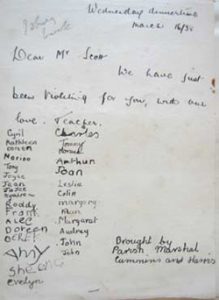 Wednesday dinnertime
March 16/38
Dear Mr Scott
We have just
been Violeting for you, with our
love. Teacher.
Cyril Charles
Kathleen Tommy
Doreen
Marion Arthur
Tony Joan
Joyce Leslie
Jean Colin
Margery
Roddy Alan
Frank Margaret
Alec Audrey
Doreen John
John
Amy
Sheena
evelyn
Brought by
Parish Marshal
Cummins and Harris